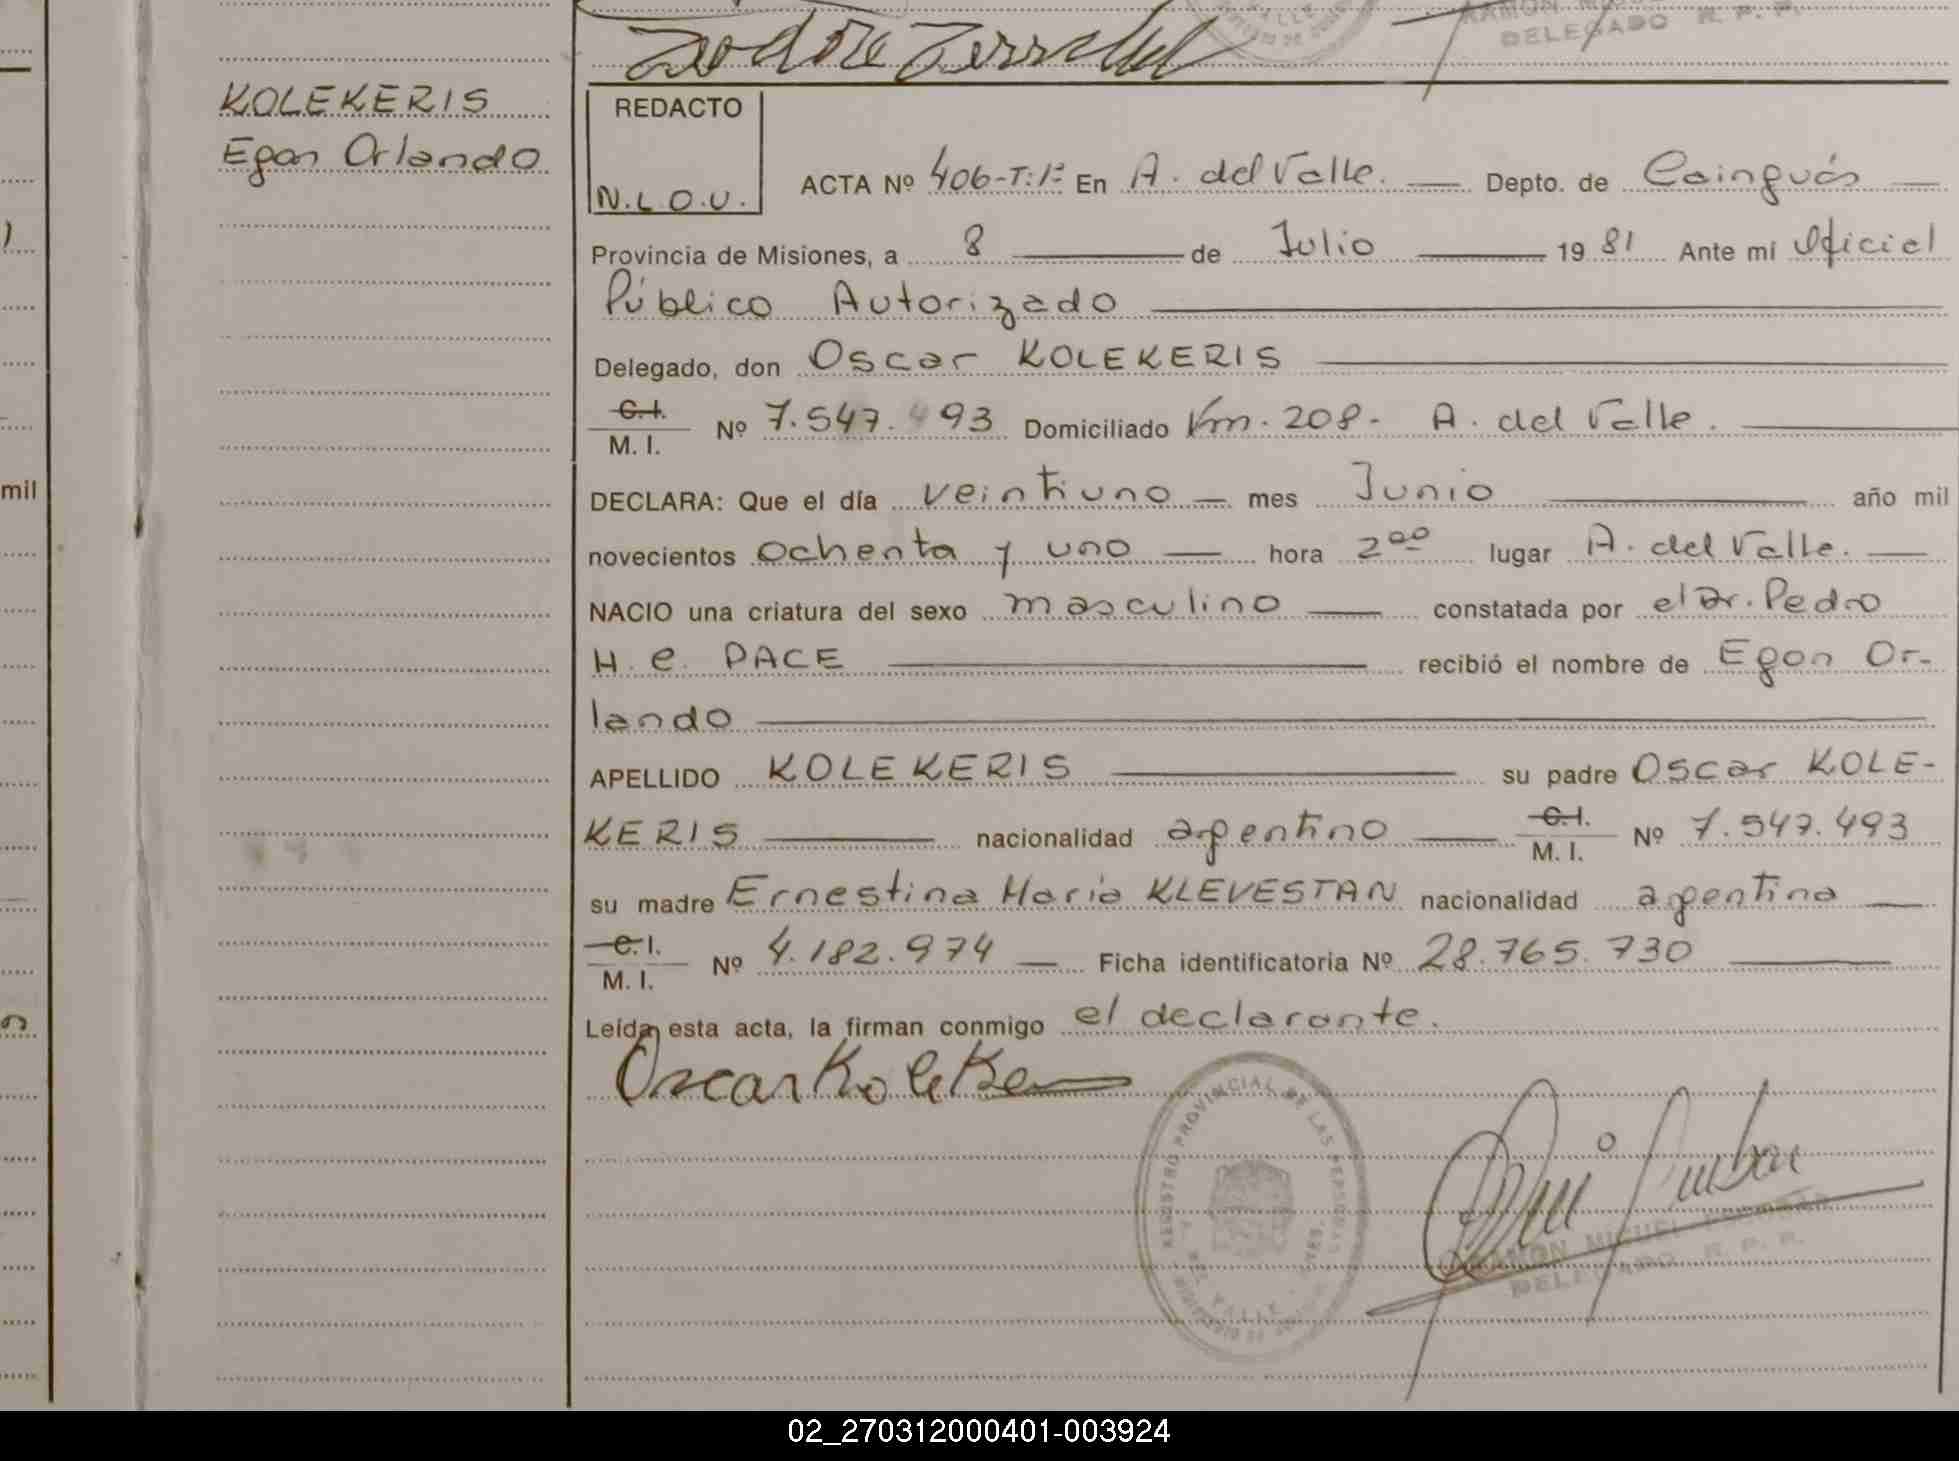 DELEGADO R. P. P.
KOLEKERIS
Egon Orlando
mil
REDACTO
N.L.O.U.
ACTA Nº 406-T:1º En A. del Valle. Depto. de Cainguás
Provincia de Misiones, a 8 de Julio 19 81 Ante mí Oficial
Público Autorizado
Delegado, don Oscar KOLEKERIS
C.I. M.I. Nº 7.547.493 Domiciliado Km. 208- A. del Valle.
DECLARA: Que el día veintiuno mes Junio año mil
novecientos ochenta y uno hora 2⁰⁰ lugar A. del Valle.
NACIO una criatura del sexo masculino constatada por el Dr. Pedro
H. C. PACE recibió el nombre de Egon Or-
lando
APELLIDO KOLEKERIS su padre Oscar KOLE-
KERIS nacionalidad argentino C.I. M.I. Nº 7.547.493
su madre Ernestina María KLEVESTAN nacionalidad argentina
C.I. M.I. Nº 4.182.974 Ficha identificatoria Nº 28.765.730
Leída esta acta, la firman conmigo el declarante.
Oscar Koleke
REGISTRO PROVINCIAL DE LAS PERSONAS
DEL VALLE
RAMON MIGUEL
DELEGADO R. P. P.
02_270312000401-003924